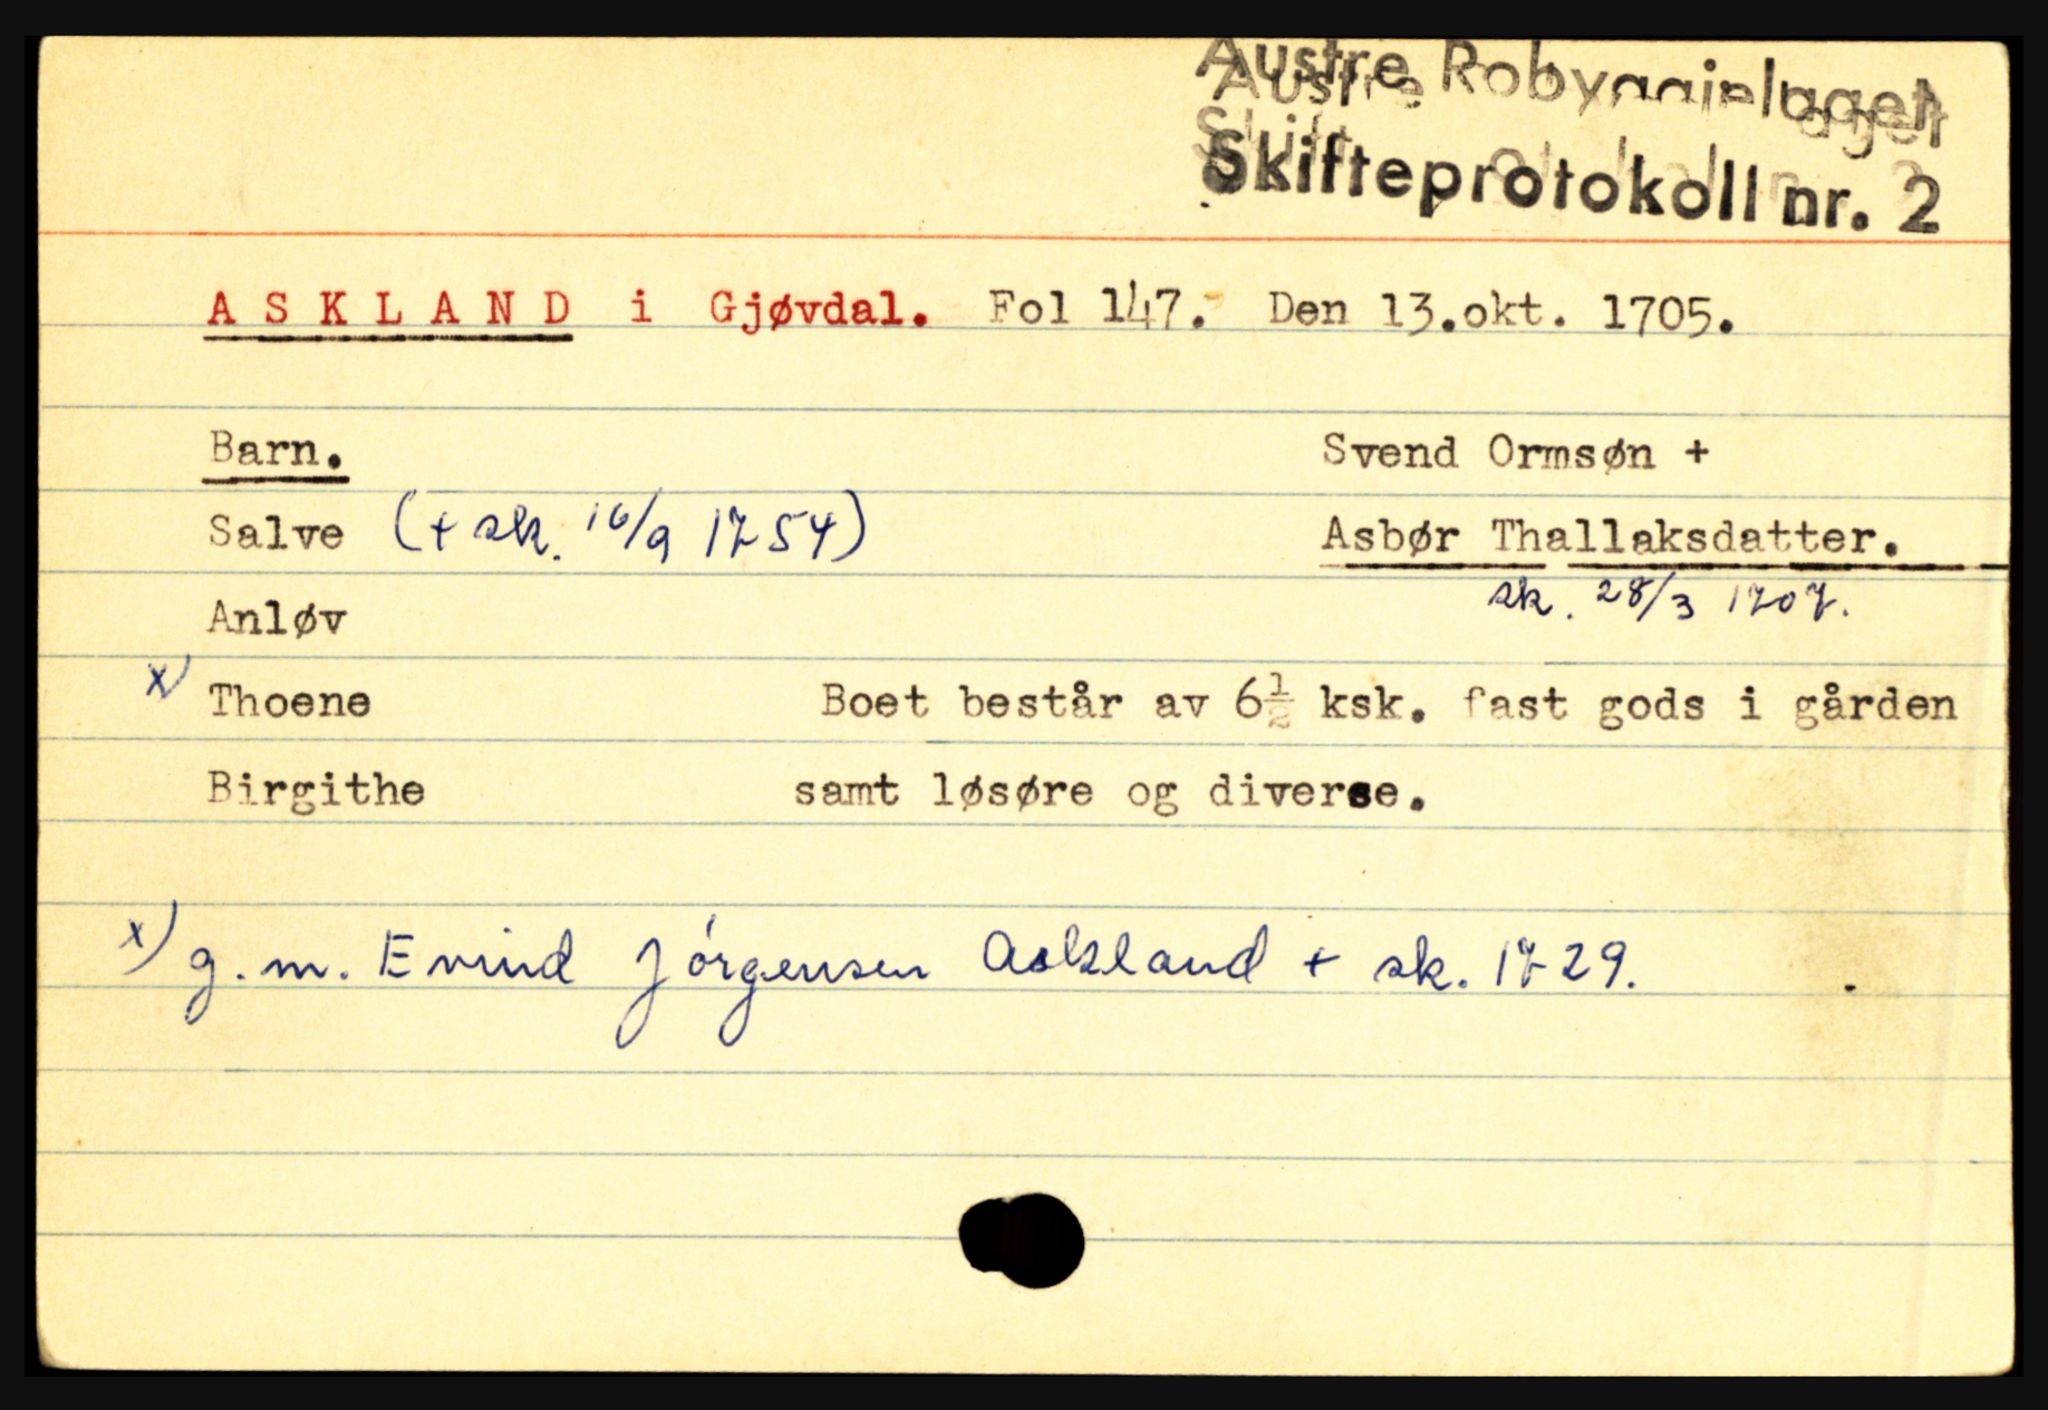 Austre Robyggjelaget
Skifteprotokoll nr. 2
ASKLAND i Gjøvdal. Fol 147. Den 13.okt. 1705.
Barn. Svend Ormsøn +
Salve (+ sk. 16/9 1754) Asbør Thallaksdatter.
sk. 28/3 1707.
Anløv
x) Thoene Boet består av 6½ ksk. fast gods i gården
Birgithe samt løsøre og diverse.
x) g.m. Evind Jórgensen Askland + sk. 1729.